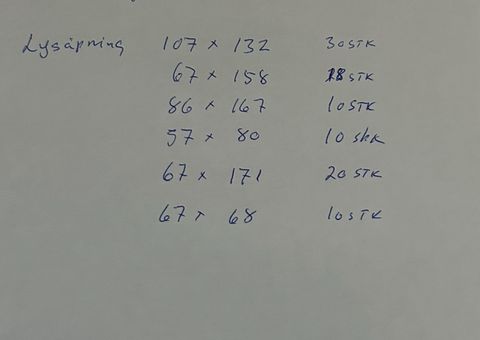 Lysåpning 107 x 132 30 STK
67 x 158 18 STK
86 x 167 10 STK
57 x 80 10 stk
67 x 171 20 STK
67 x 68 10 STK